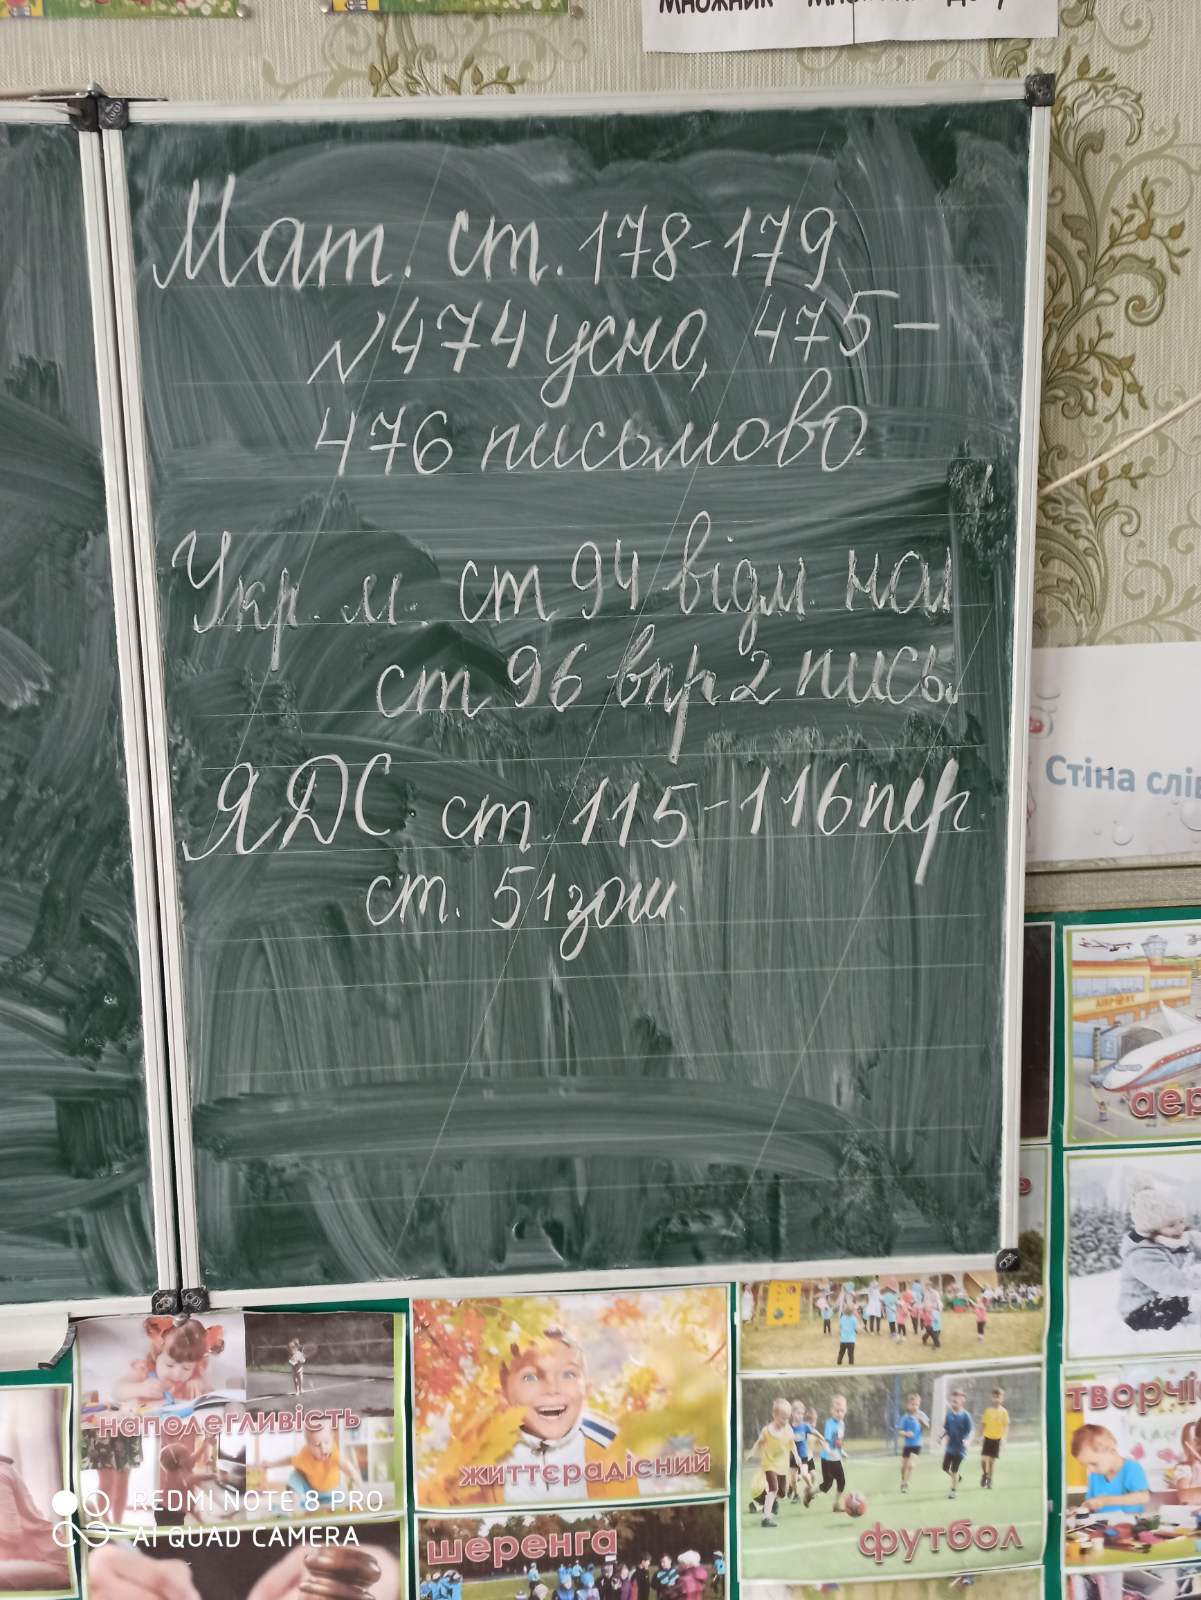 множник
Мат. ст. 178-179
№474 усно, 475-
476 письмово.
Укр. м. ст 94 відм. на
ст 96 впр 2 письм
ЯДС ст. 115-116 пер
ст. 51 зош.
Стіна слів
аер
наполегливість
життєрадісний
творчі
шеренга
футбол
REDMI NOTE 8 PRO
AI QUAD CAMERA